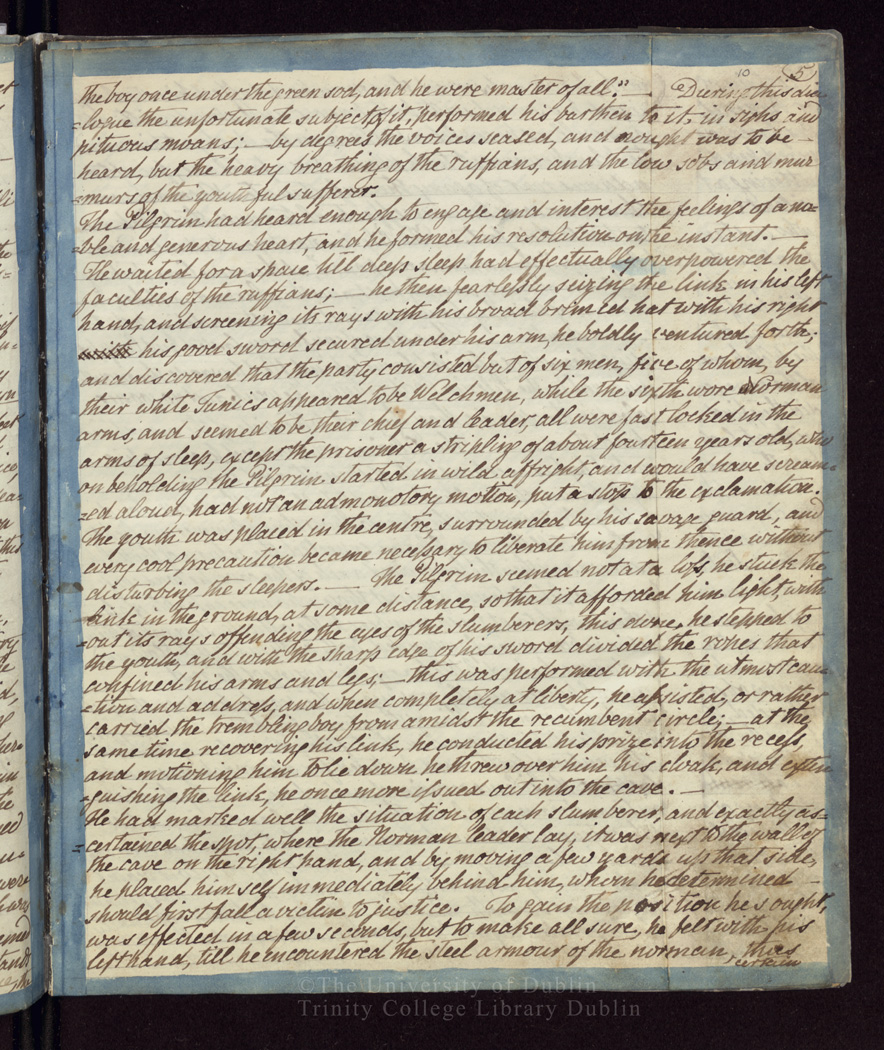 10 5
the boy once under the green sod, and he were master of all." — During this dia
=logue the unfortunate subject of it, performed his barthen to it in sighs and
pituous moans; — by degrees the voices seased, and nought was to be
heard, but the heavy breathing of the ruffians, and the low sobs and mur
=murs of the youthful sufferer.
The Pilgrim had heard enough to engage and interest the feelings of a no=
=ble and generous heart, and he formed his resolution on the instant. —
He waited for a space till deep sleep had effectually overpowered the
faculties of the ruffians; — he then fearlessly seizing the link in his left
hand, and screening its rays with his broad brimed hat with his right
his good sword secured under his arm, he boldly ventured forth;
and discovered that the party consisted but of six men, five of whom, by
their white Tunics appeared to be Welchmen, while the sixth wore Norman
arms, and seemed to be their chief and leader, all were fast locked in the
arms of sleep, except the prisoner a stripling of about fourteen years old, who
on beholding the Pilgrim started in wild affright, and would have scream=
=ed aloud, had not an admonotory motion, put a stop to the exclamation.
The youth was placed in the centre, surrounded by his savage guard, and
every cool precaution became necessary to liberate him from thence without
disturbing the sleepers. — The Pilgrim seemed not at a loss, he stuck the
link in the ground, at some distance, so that it afforded him light, with
=out its rays offending the eyes of the slumberers, this done, he stepped to
the youth, and with the sharp edge of his sword divided the ropes that
confined his arms and legs; — this was performed with the utmost cau=
=tion and address, and when completely at liberty, he assisted, or rather
carried the trembling boy from amidst the recumbent circle; — at the
same time recovering his link, he conducted his prize into the recess,
and motioning him to lie down he threw over him his cloak, and extin
=guishing the link, he once more issued out into the cave. —
He had marked well the situation of each slumberer, and exactly as=
=certained the spot, where the Norman leader lay, it was next to the wall of
the cave on the right hand, and by moving a few yards up that side,
he placed himself immediately behind him, whom he determined
should first fall a victim to justice. To gain the position he sought,
was effected in a few seconds, but to make all sure, he felt with his
left hand, till he encountered the steel armour of the norman, thus
certain
©The University of Dublin
Trinity College Library Dublin